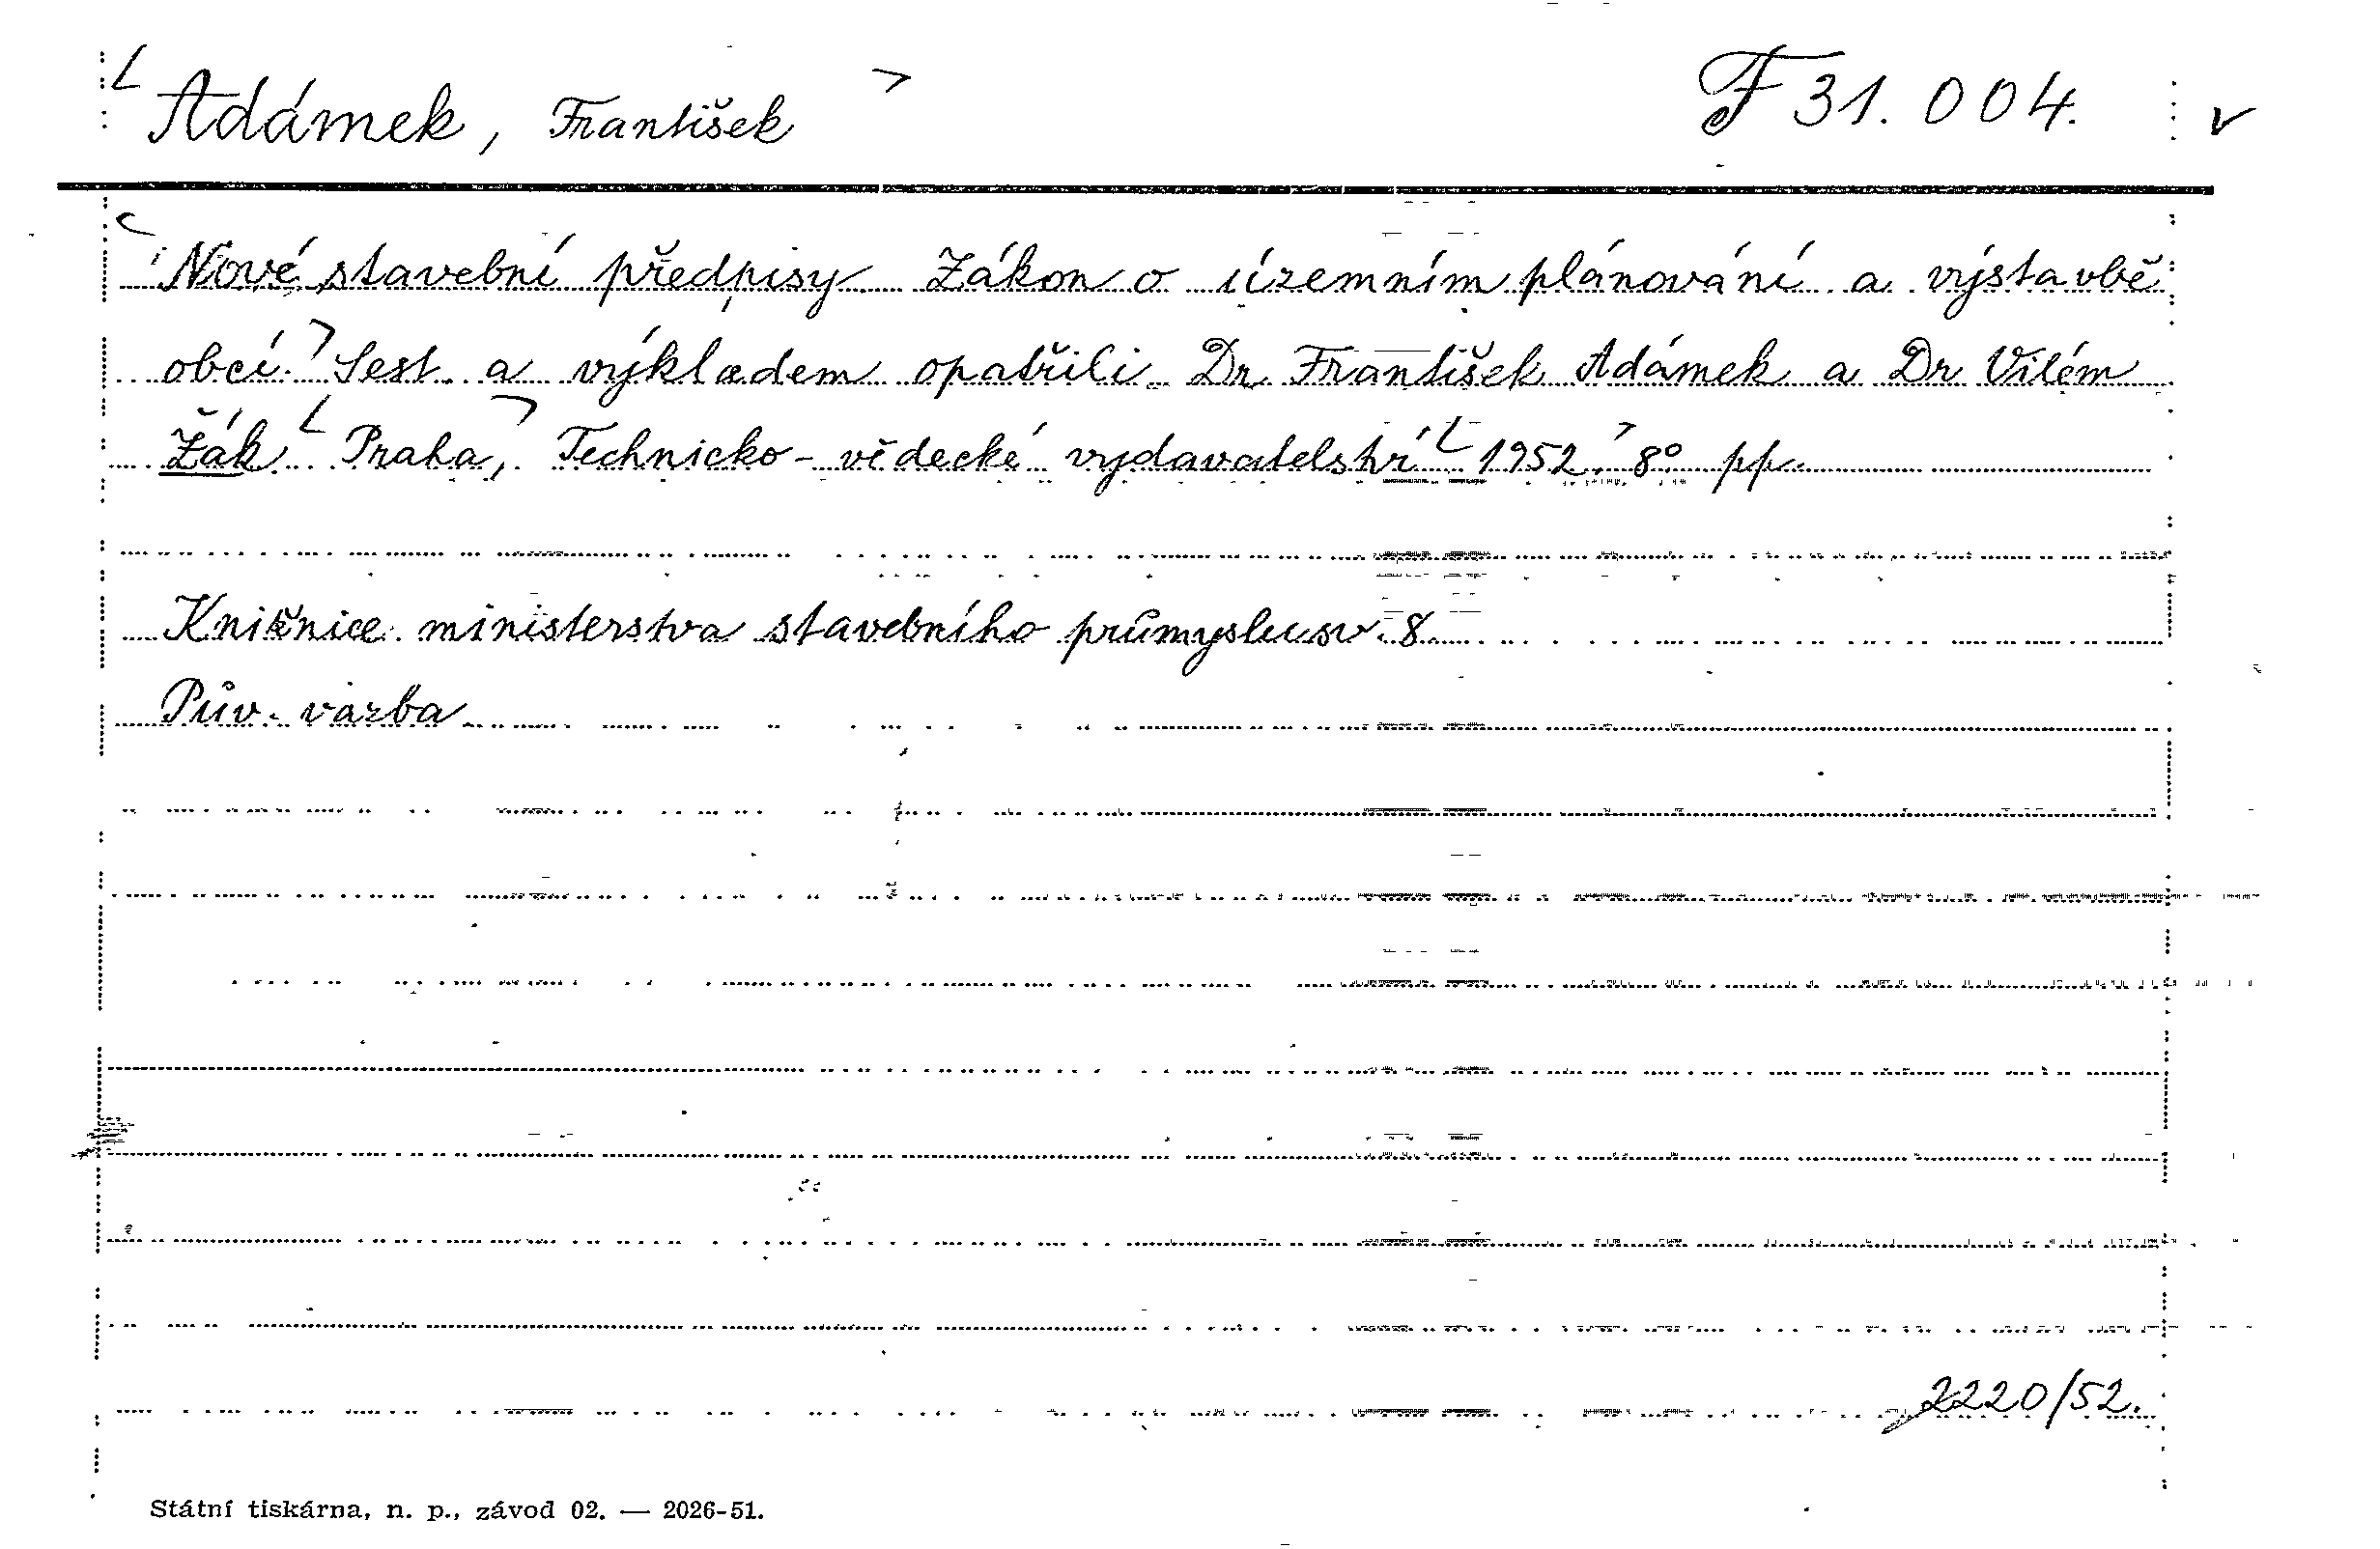 Adámek, František F 31.004. v
Nové stavební předpisy. Zákon o územním plánování a výstavbě
obcí. Sest. a výkladem opatřili Dr František Adámek a Dr Vilém
Žák. Praha, Technicko-vědecké vydavatelství 1952. 8° pp.
Knižnice ministerstva stavebního průmyslu sv. 8.
Pův. vazba
2220/52.
Státní tiskárna, n. p., závod 02. — 2026-51.